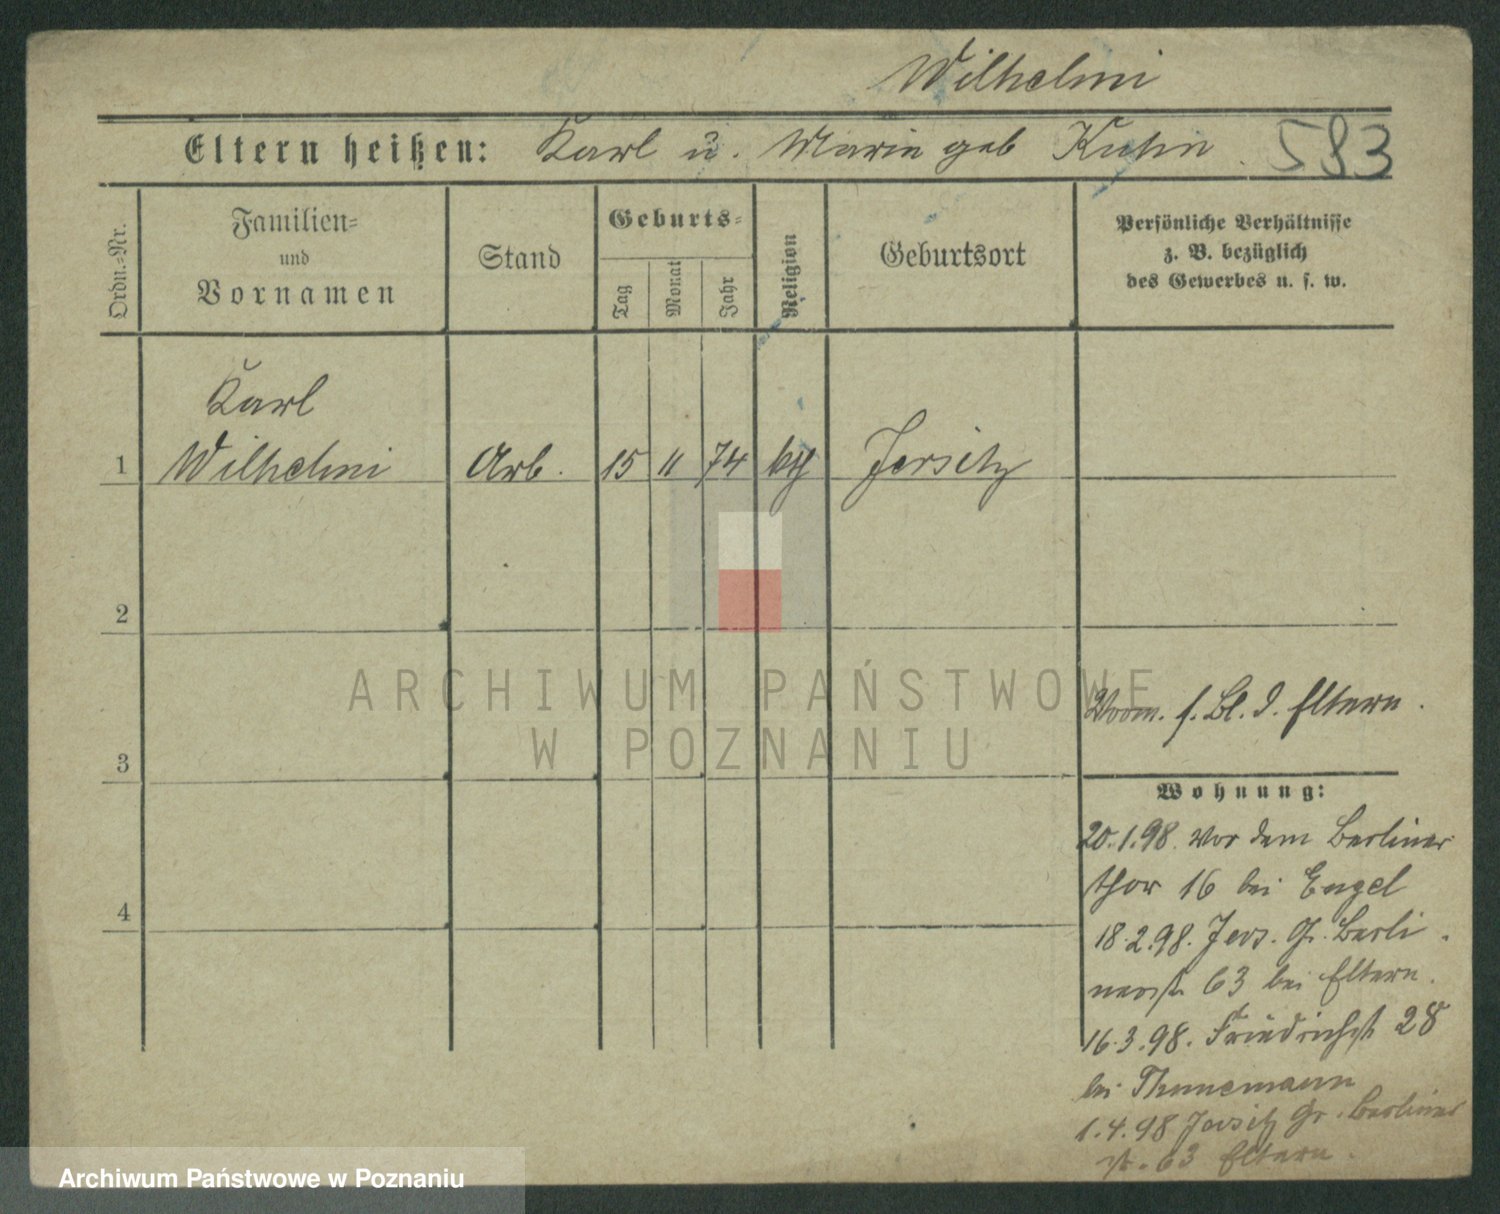 Wilhelmi
Eltern heißen: Karl u. Marie geb Kuhn. 583
Ordn.-Nr.
Familien-
und
Vornamen
Stand
Geburts-
Tag
Monat
Jahr
Religion
Geburtsort
Persönliche Verhältnisse
z. B. bezüglich
des Gewerbes u. s. w.
Karl
1 Wilhelmi Arb. 15 11 74 kth Jersitz
2
3
4
f. Bl. d. Eltern.
Wohnung:
20.1.98. Vor dem Berliner
thor 16 bei Engel
18.2.98. Jers. Gr. Berli
nerstr 63 bei Eltern.
16.3.98. Friedrichstr 28
bei Thunemann
1.4.98 Jersitz Gr. Berliner
str. 63 Eltern.
ARCHIWUM PAŃSTWOWE
W POZNANIU
Archiwum Państwowe w Poznaniu